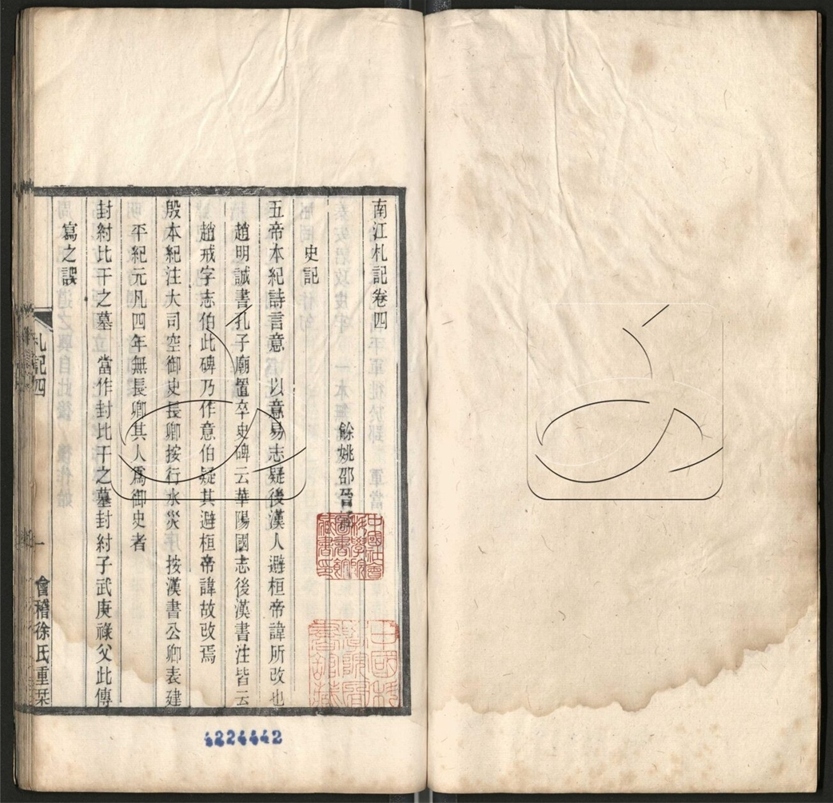 南江札記卷四
餘姚邵晉涵
史記
五帝本紀詩言意 以意易志疑後漢人避桓帝諱所改也
趙明誠書孔子廟置卒史碑云華陽國志後漢書注皆云
趙戒字志伯此碑乃作意伯疑其避桓帝諱故改焉
殷本紀注大司空御史長卿按行水災序 按漢書公卿表建
平紀元凡四年無長卿其人爲御史者
封紂比干之墓 當作封比干之墓封紂子武庚祿父此傳
寫之誤
札記四
一
會稽徐氏重栞
4224442